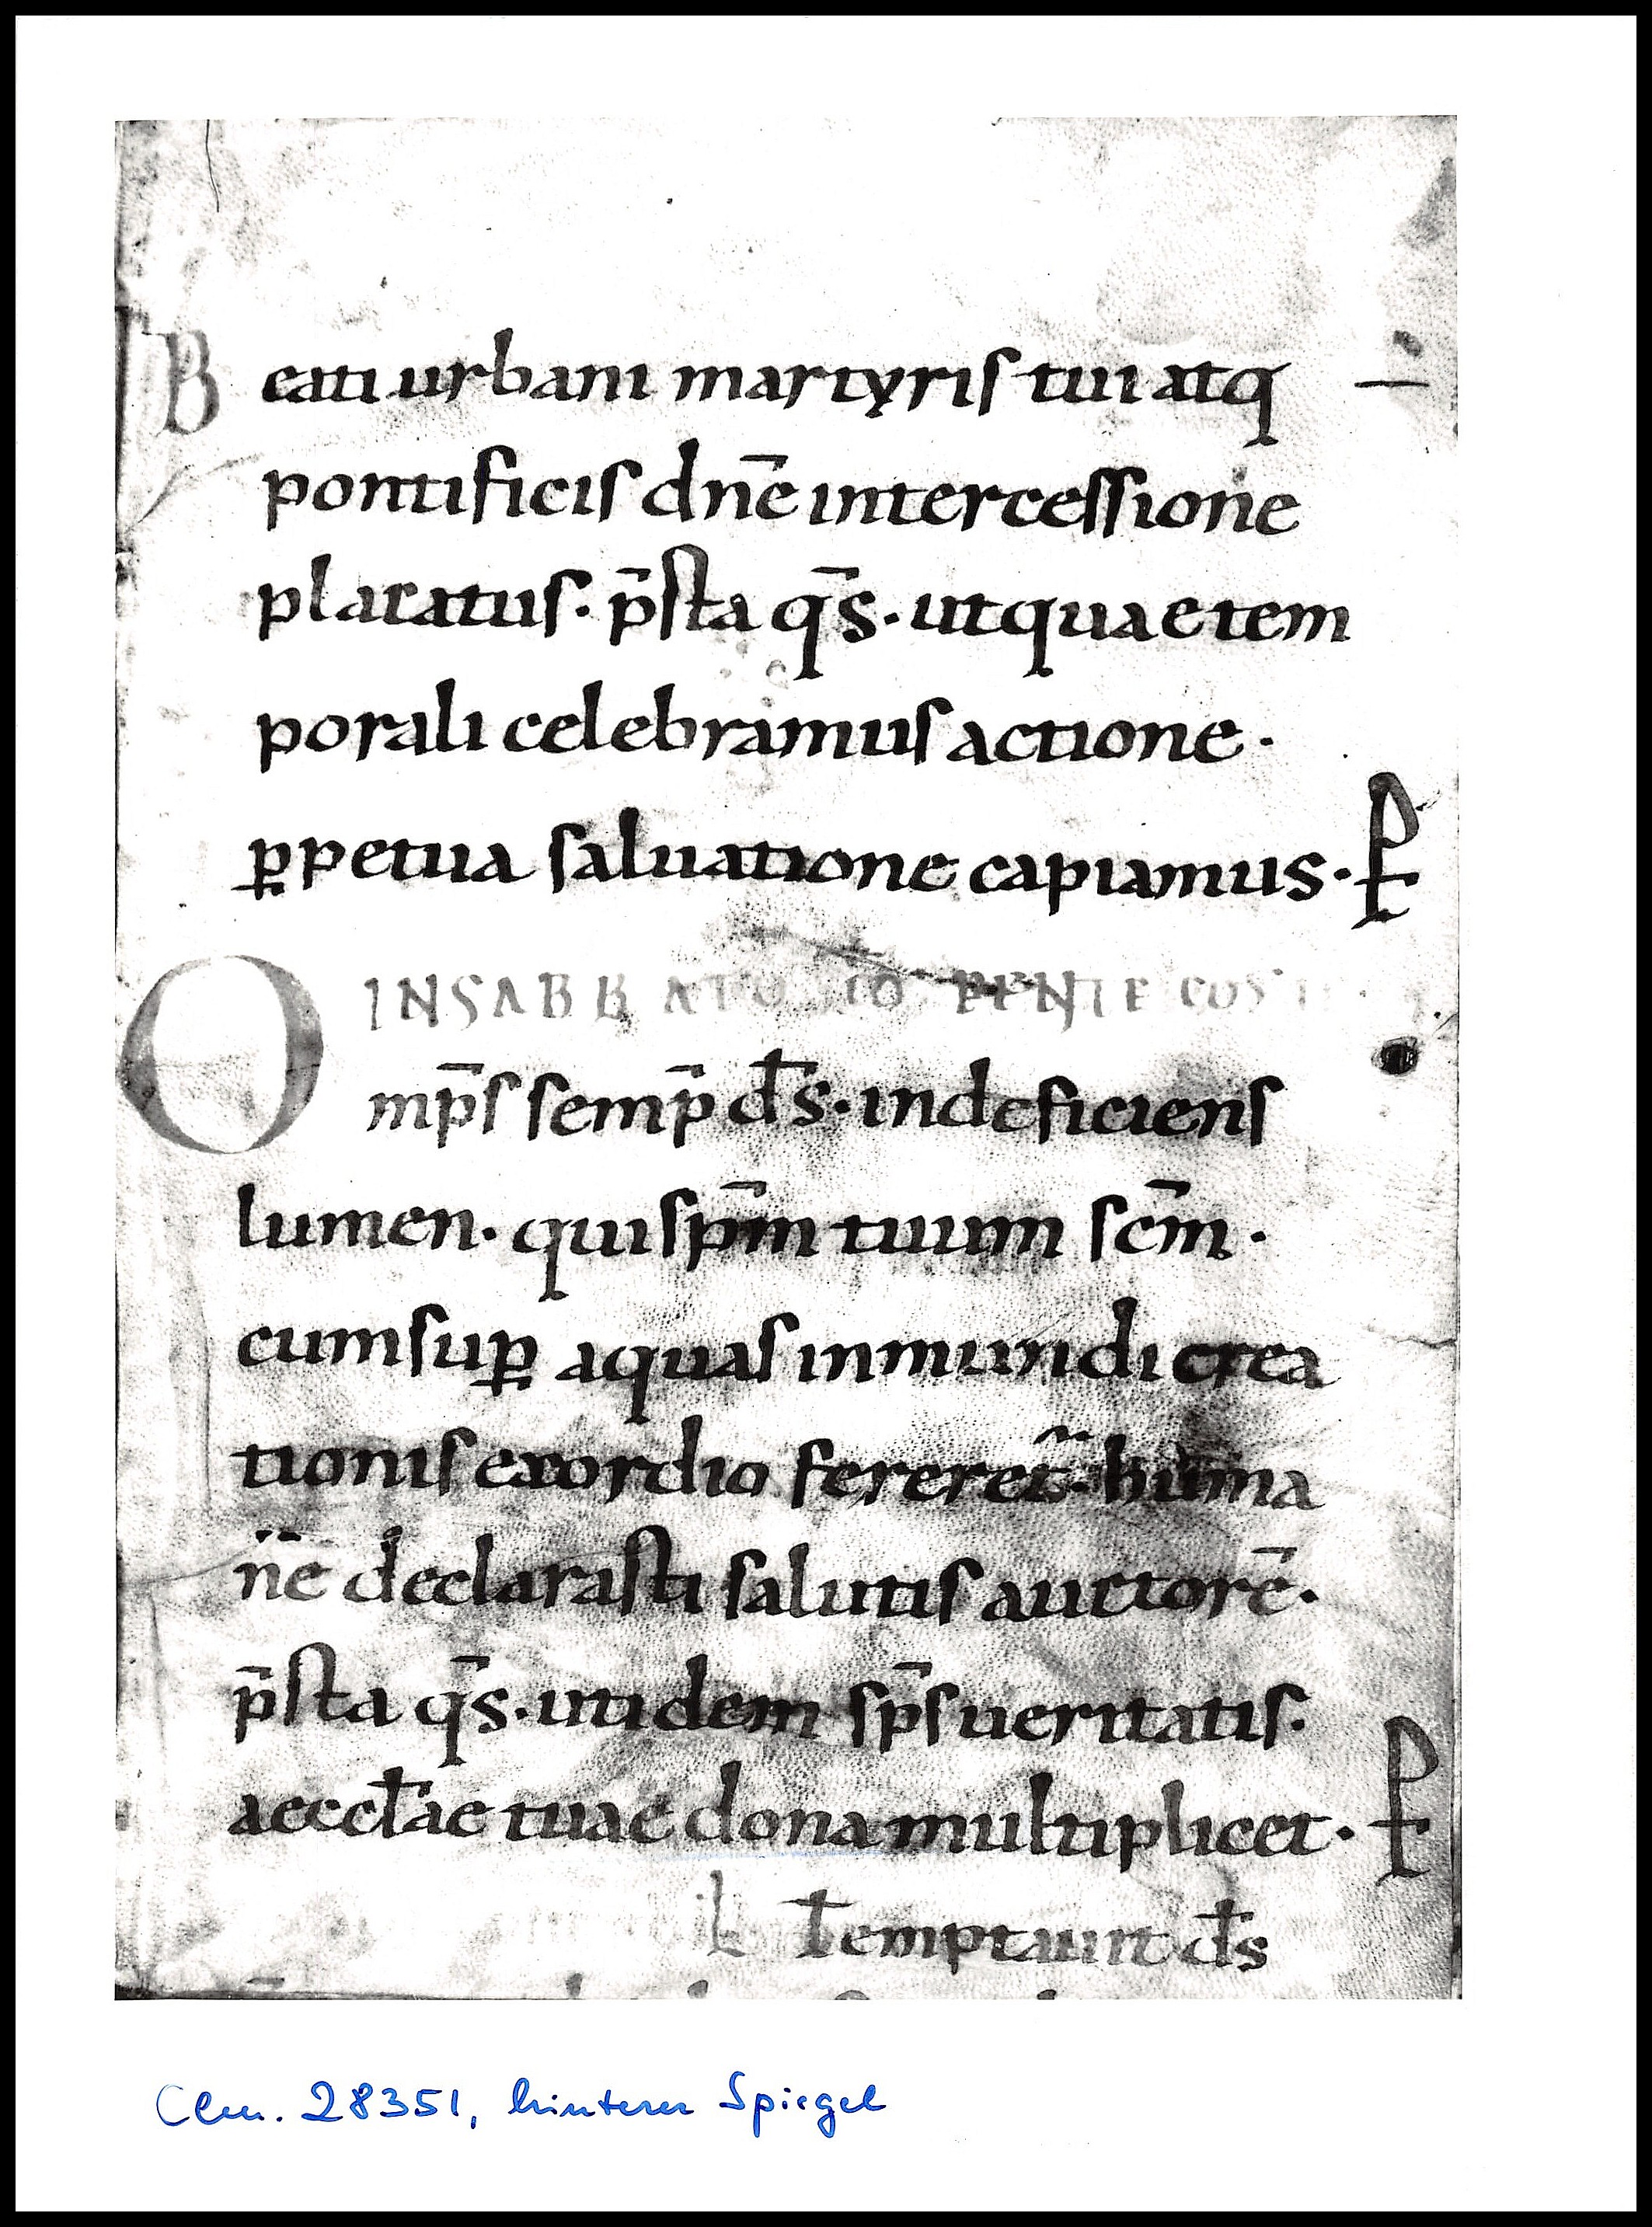 Beati urbani martyris tui atq
pontificis dnē intercessione
placatus · p̄sta qs̄ · ut quae tem
porali celebramus actione ·
ꝑpetua saluatione capiamus · P
IN SABBATO PENTECOS
Omp̄s semp̄ d̄s · indeficiens
lumen · qui sp̄m tuum sc̄m ·
cum suꝑ aquas in mundi crea
tionis exordio fereret · huma
ne declarasti salutis auctorē ·
p̄sta qs̄ · ut idem sp̄s ueritatis ·
aeccl̄ae tuae dona multiplicet · P
L Temptauit d̄s
Clm. 28351, hinterer Spiegel